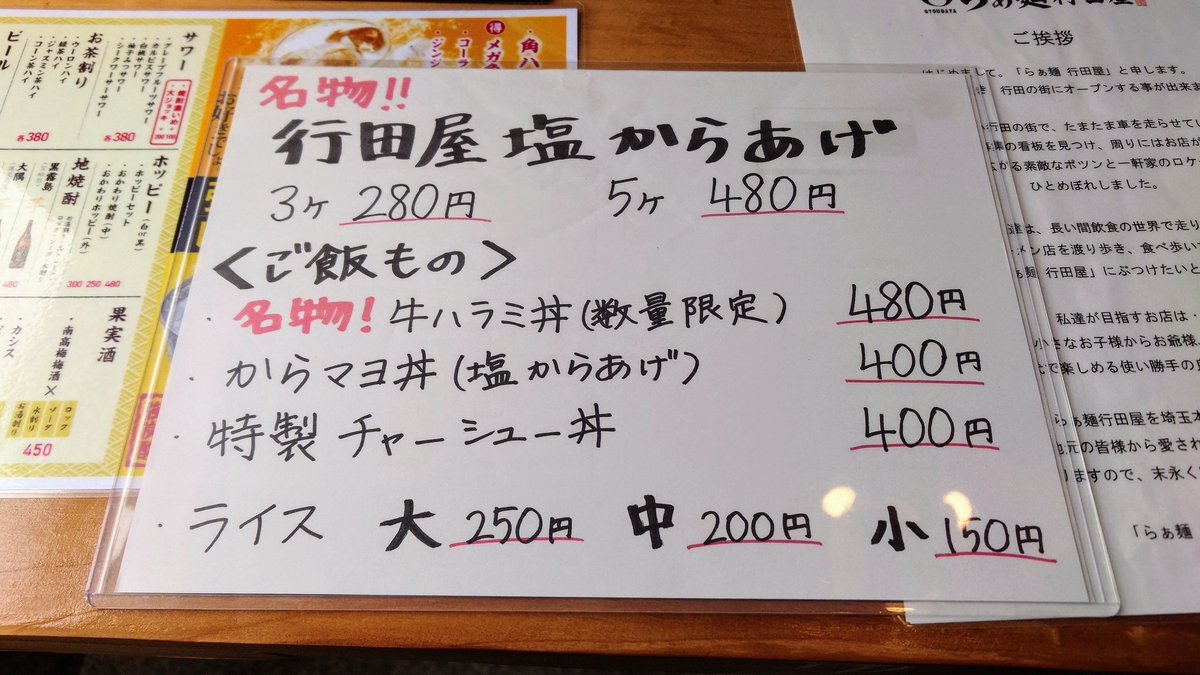 名物!!
行田屋 塩からあげ
3ヶ 280円 5ヶ 480円
<ご飯もの>
・名物! 牛ハラミ丼(数量限定) 480円
・からマヨ丼(塩からあげ) 400円
・特製チャーシュー丼 400円
・ライス 大 250円 中 200円 小 150円
サワー
・グレープフルーツサワー
・カルピスサワー
・白桃サワー
・柚子みつサワー
・シークワーサーサワー
各380
お茶割り
・ウーロンハイ
・緑茶ハイ
・ジャスミン茶ハイ
・コーン茶ハイ
各380
ビール
ホッピー
・ホッピーセット(白or黒)
・おかわり焼酎(中)
・おかわりホッピー(外)
480
250
300
地焼酎
黒霧島
大隅
480
果実酒
・南高梅梅酒
・カシス
ロック
ソーダ
水割り
お湯割り
450
得
メガ
・角ハ
・コーラ
・ジンジ
GYOUDAYA
らぁ麺行田屋
ご挨拶
はじめまして。「らぁ麺 行田屋」と申します。
行田の街にオープンする事が出来ま
行田の街で、たまたま車を走らせてい
の看板を見つけ、周りにはお店が
がる素敵なポツンと一軒家のロケー
ひとめぼれしました。
達は、長い間飲食の世界で走り
メン店を渡り歩き、食べ歩い
ぁ麺 行田屋」にぶつけたいと
私達が目指すお店は・
小さなお子様からお爺様、
で楽しめる使い勝手の良
らぁ麺行田屋を埼玉
地元の皆様から愛され
りますので、末永く
「らぁ麺